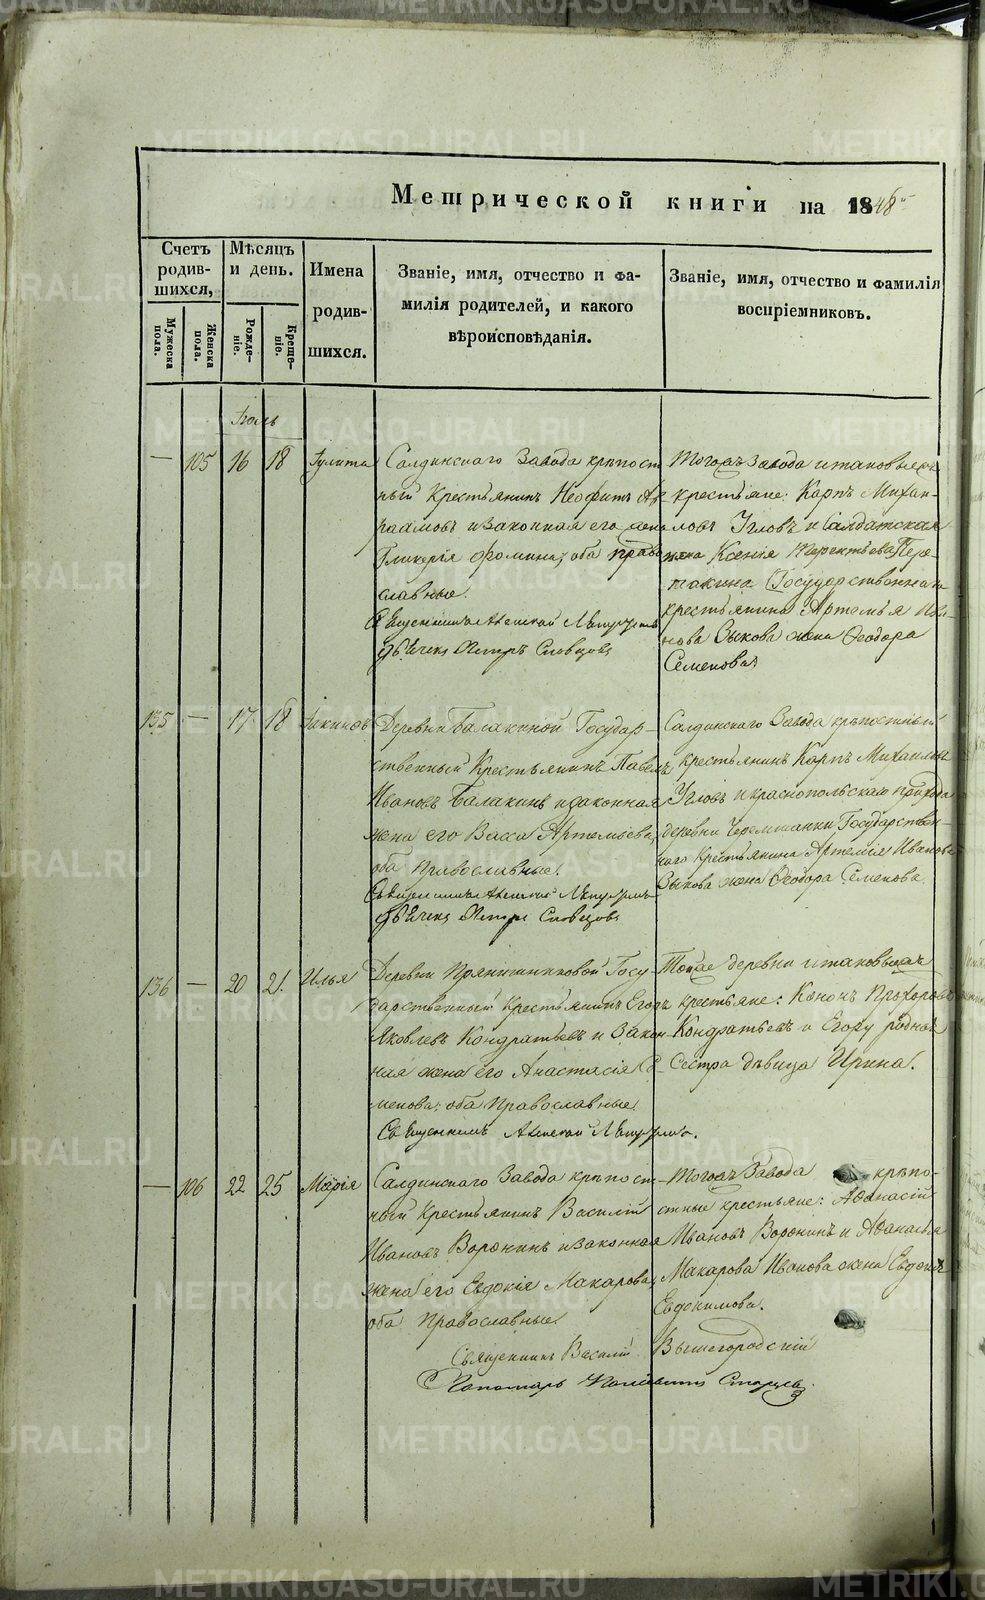 METRIKI.GASO-URAL.RU
Метрической книги на 1848
Счетъ родив-шихся,
Мѣсяцъ и день.
Имена родив-шихся.
Званіе, имя, отчество и фа-
милія родителей, и какого
вѣроисповѣданія.
Званіе, имя, отчество и фамилія
воспріемниковъ.
Мужеска пола.
Женска пола.
Рожде-ніе.
Креще-ніе.
Іюль
— 105 16 18 Іулита
Салдинскаго Завода крѣпост
ный Крестьянинъ Неофитъ Ав
раамовъ и законная его жена
Гликерія Фомина, оба право
славные.
Священникъ Алексей
Дьячекъ Петръ Словцовъ
Тогожъ Завода и таковыежъ
крестьяне: Карпъ Михай-
ловъ Угловъ и Салдатская
жена Ксенія Терентьева
Государственнаго
крестьянина Артемья Ива-
нова Зыкова жена Ѳеодора
Семенова
135 — 17 18
Деревни Балакиной Государ-
ственный Крестьянинъ Павелъ
Ивановъ Балакинъ и законная
жена его Васса Артемьева,
оба Православные.
Священникъ Алексей
Дьячекъ Петръ Словцовъ
Салдинскаго Завода крѣпостный
крестьянинъ Карпъ Михайловъ
Угловъ и краснопольскаго прихода
деревни Черемшанки Государствен-
наго Крестьянина Артемія Иванова
Зыкова жена Ѳеодора Семенова
136 — 20 21. Илья
Деревни Прянишниковой Госу-
дарственный Крестьянинъ Егоръ
Яковлевъ Кондратьевъ и Закон
ная жена его Анастасія Се-
менова, оба Православные.
Священникъ Алексей
Тойже деревни и таковыежъ
крестьяне: Кононъ Прохоровъ
Кондратьевъ и Егору родная
Сестра дѣвица Ирина.
— 106 22 25 Марія
Салдинскаго Завода крѣпост-
ный Крестьянинъ Василій
Ивановъ Воронинъ и законная
жена его Евдокія Макарова,
оба Православные.
Тогожъ Завода крѣпо-
стные крестьяне: Аѳанасій
Ивановъ Воронинъ и Аѳанасья
Макарова Иванова жена Евдокія
Евдокимова.
Священникъ Василій Вышегородскій
Пономарь